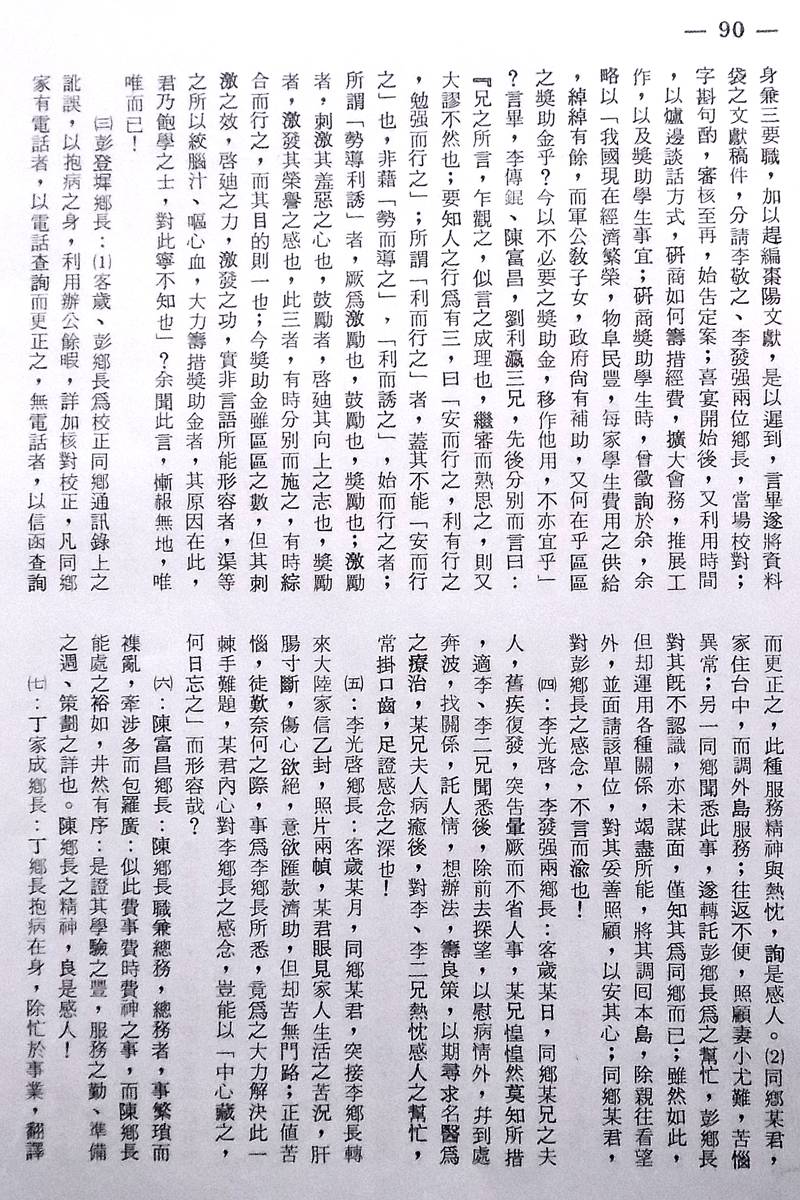 — 90 —
身兼三要職，加以趕編棗陽文獻，是以遲到，言畢遂將資料
袋之文獻稿件，分請李敬之、李發强兩位鄉長，當場校對；
字斟句酌，審核至再，始告定案；喜宴開始後，又利用時間
，以爐邊談話方式，硏商如何籌措經費，擴大會務，推展工
作，以及獎助學生事宜；硏商獎助學生時，曾徵詢於余，余
略以「我國現在經濟繁榮，物阜民豐，每家學生費用之供給
，綽綽有餘，而軍公敎子女，政府尙有補助，又何在乎區區
之獎助金乎？今以不必要之獎助金，移作他用，不亦宜乎」
？言畢，李傳錕、陳富昌，劉利瀛三兄，先後分别而言曰：
『兄之所言，乍觀之，似言之成理也，繼審而熟思之，則又
大謬不然也；要知人之行爲有三，曰「安而行之，利有行之
，勉强而行之」；所謂「利而行之」者，蓋其不能「安而行
之」也，非藉「勢而導之」，「利而誘之」，始而行之者；
所謂「勢導利誘」者，厥爲激勵也，鼓勵也，獎勵也；激勵
者，刺激其羞惡之心也，鼓勵者，啓廸其向上之志也，獎勵
者，激發其榮譽之感也，此三者，有時分别而施之，有時綜
合而行之，而其目的則一也；今獎助金雖區區之數，但其刺
激之效，啓廸之力，激發之功，實非言語所能形容者，渠等
之所以絞腦汁、嘔心血，大力籌措獎助金者，其原因在此，
君乃飽學之士，對此寧不知也」？余聞此言，慚赧無地，唯
唯而已！
㈢彭登墀鄉長：⑴客歲、彭鄉長爲校正同鄉通訊錄上之
訛誤，以抱病之身，利用辦公餘暇，詳加核對校正，凡同鄉
家有電話者，以電話查詢而更正之，無電話者，以信函查詢
而更正之，此種服務精神與熱忱，詢是感人。⑵同鄉某君，
家住台中，而調外島服務；往返不便，照顧妻小尤難，苦惱
異常；另一同鄉聞悉此事，遂轉託彭鄉長爲之幫忙，彭鄉長
對其旣不認識，亦未謀面，僅知其爲同鄉而已；雖然如此，
但却運用各種關係，竭盡所能，將其調回本島，除親往看望
外，並面請該單位，對其妥善照顧，以安其心；同鄉某君，
對彭鄉長之感念，不言而渝也！
㈣：李光啓，李發强兩鄉長：客歲某日，同鄉某兄之夫
人，舊疾復發，突告暈厥而不省人事，某兄惶惶然莫知所措
，適李、李二兄聞悉後，除前去探望，以慰病情外，幷到處
奔波，找關係，託人情，想辦法，籌良策，以期尋求名醫爲
之療治，某兄夫人病癒後，對李、李二兄熱忱感人之幫忙，
常掛口齒，足證感念之深也！
㈤：李光啓鄉長：客歲某月，同鄉某君，突接李鄉長轉
來大陸家信乙封，照片兩幀，某君眼見家人生活之苦況，肝
腸寸斷，傷心欲絕，意欲匯款濟助，但却苦無門路；正値苦
惱，徒歎奈何之際，事爲李鄉長所悉，竟爲之大力解決此一
棘手難題，某君內心對李鄉長之感念，豈能以「中心藏之，
何日忘之」而形容哉？
㈥：陳富昌鄉長：陳鄉長職兼總務，總務者，事繁瑣而
襍亂，牽涉多而包羅廣：似此費事費時費神之事，而陳鄉長
能處之裕如，井然有序：是證其學驗之豐，服務之勤、準備
之週、策劃之詳也。陳鄉長之精神，良是感人！
㈦：丁家成鄉長：丁鄉長抱病在身，除忙於事業，翻譯